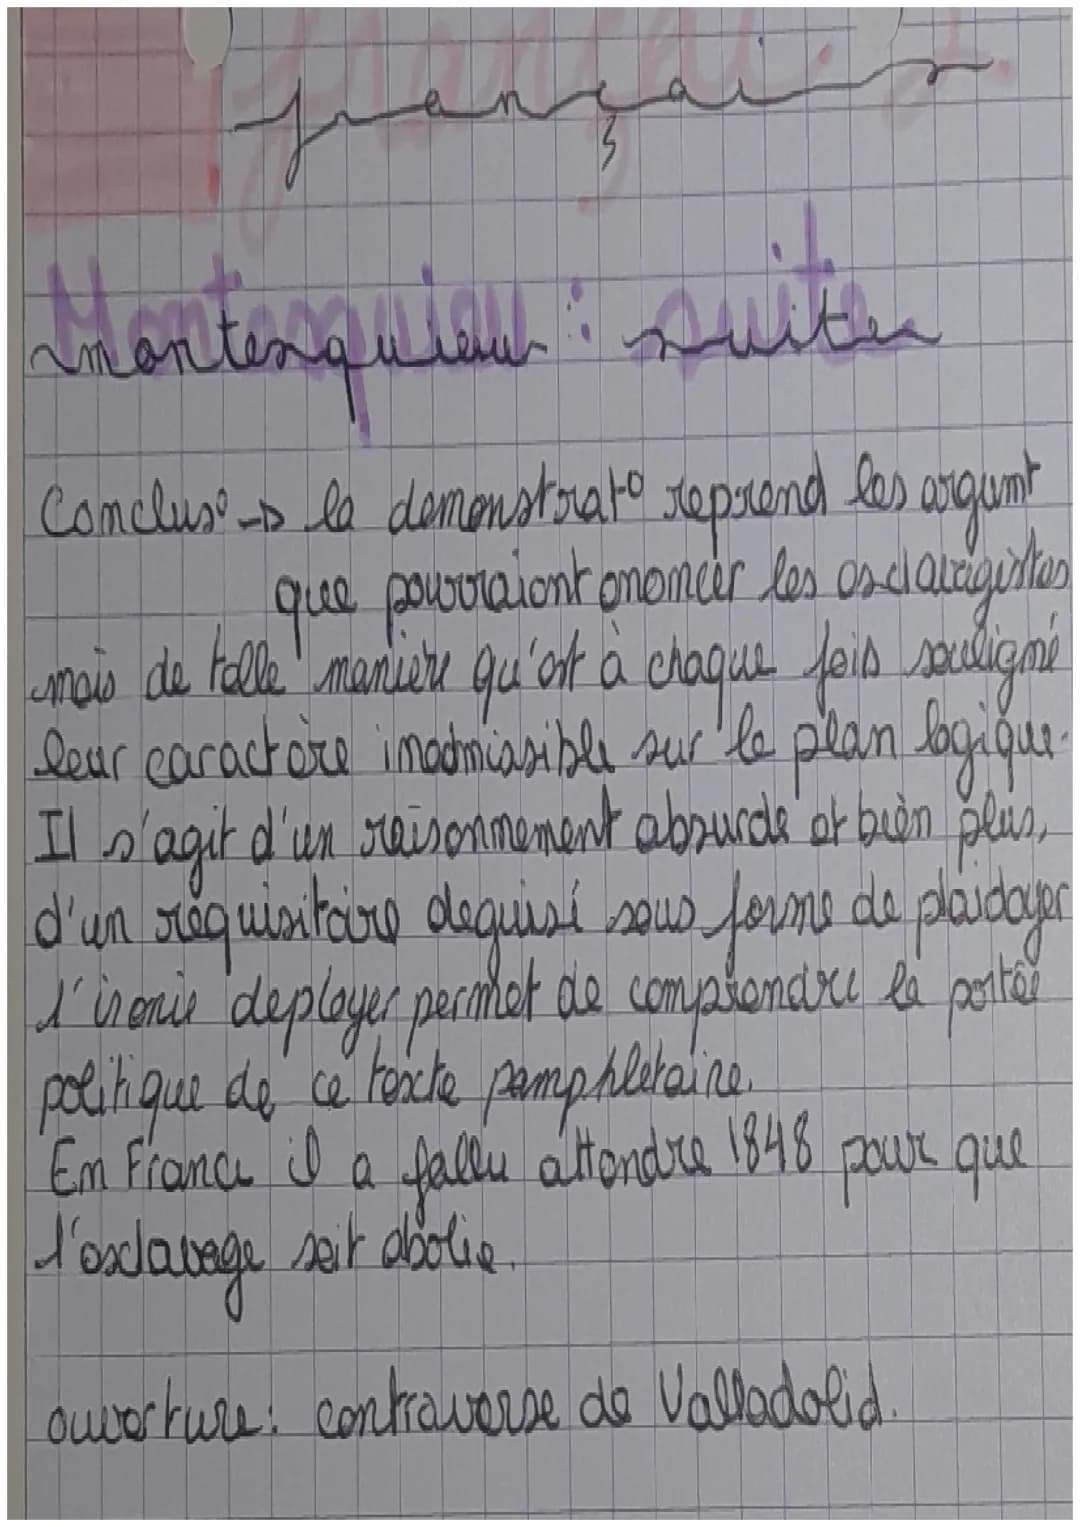 français
Montesquieu : suite
Conclus° → la demonstrat° reprend les argumt
que pourraient enoncer les esclavagistes
mais de telle manière qu'est à chaque fois souligné
leur caractère inadmissible sur le plan logique.
Il s'agit d'un raisonnement absurde et bien plus,
d'un réquisitoire deguisé sous forme de plaidoyer
l'ironie deployer permet de comprendre la portée
politique de ce texte pamphletaire.
En France il a fallu attendre 1848 pour que
l'esclavage soit abolie.
ouverture: contraverse de Valladolid.